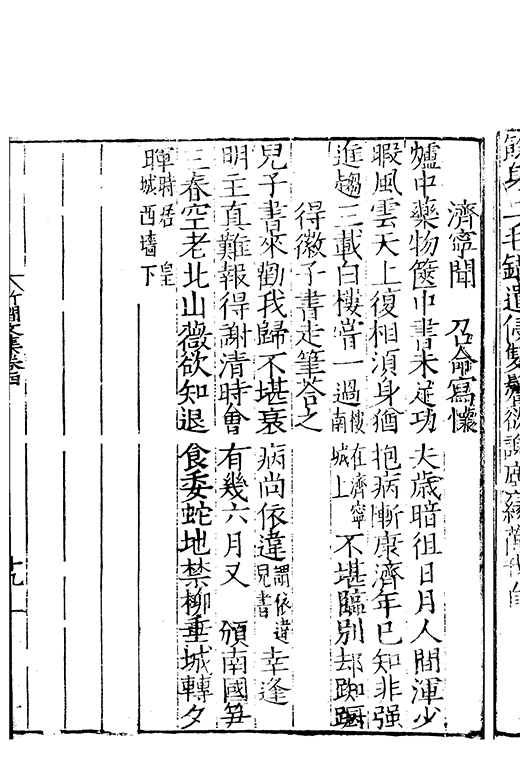 濟寧聞　召命寫懷
爐中藥物篋中書未定功夫歲暗徂日月人間渾少
暇風雲天上復相須身猶抱病慚康濟年已知非强
進趨三載白樓嘗一過樓在濟寧南城上不堪臨別却踟躕
得徽子書走筆答之
兒子書來勸我歸不堪衰病尚依違謂依違兒書幸逢
明主真難報得謝清時會有幾六月又　頒南國笋
三春空老北山薇欲知退食委蛇地禁柳垂城轉夕
暉時居　皇城西墻下
竹澗文集卷四
十九